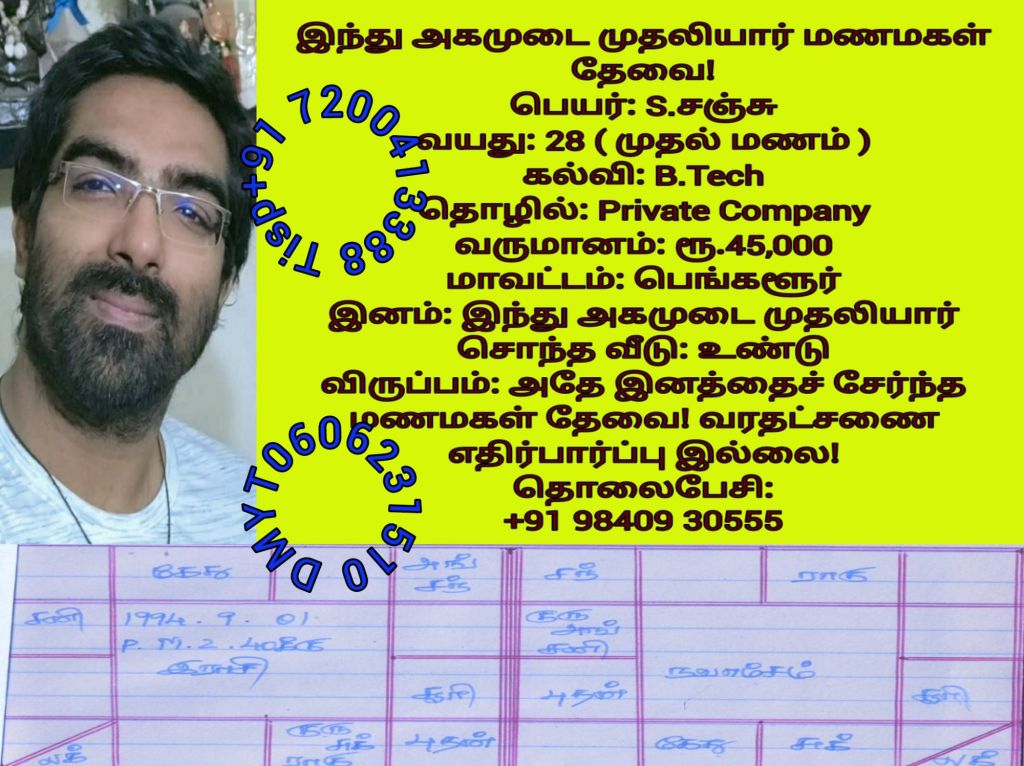 இந்து அகமுடை முதலியார் மணமகள்
தேவை!
பெயர்: S.சஞ்சு
வயது: 28 ( முதல் மணம் )
கல்வி: B.Tech
தொழில்: Private Company
வருமானம்: ரூ.45,000
மாவட்டம்: பெங்களூர்
இனம்: இந்து அகமுடை முதலியார்
சொந்த வீடு: உண்டு
விருப்பம்: அதே இனத்தைச் சேர்ந்த
மணமகள் தேவை! வரதட்சணை
எதிர்பார்ப்பு இல்லை!
தொலைபேசி:
+91 98409 30555
Tisp+91 7200413388
DMYT0606231510
கேது
அங்
சந்
சந்
ராகு
சனி
1994 . 9 . 01
குரு
அங்
P. M. 2 . 40க்கு
சனி
இராசி
நவாசேம்
சூரி
புதன்
சூரி
குரு
சுக்
ராகு
புதன்
கேது
சுக்
லக்
லக்